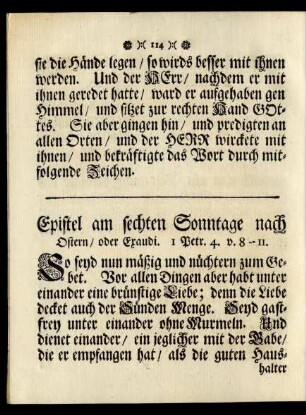 ❁ )( 114 )( ❁
sie die Hände legen / so wirds besser mit ihnen
werden. Und der HErr / nachdem er mit
ihnen geredet hatte / ward er aufgehaben gen
Himmel / und sitzet zur rechten Hand GOt-
tes. Sie aber gingen hin / und predigten an
allen Orten / und der HERR wirckete mit
ihnen / und bekräftigte das Wort durch mit-
folgende Zeichen.
Epistel am sechten Sonntage nach
Ostern / oder Exaudi. 1 Petr. 4. v. 8-11.
So seyd nun mäßig und nüchtern zum Ge-
bet. Vor allen Dingen aber habt unter
einander eine brünstige Liebe; denn die Liebe
decket auch der Sünden Menge. Seyd gast-
frey unter einander ohne Murmeln. Und
dienet einander / ein jeglicher mit der Gabe /
die er empfangen hat / als die guten Haus-
halter